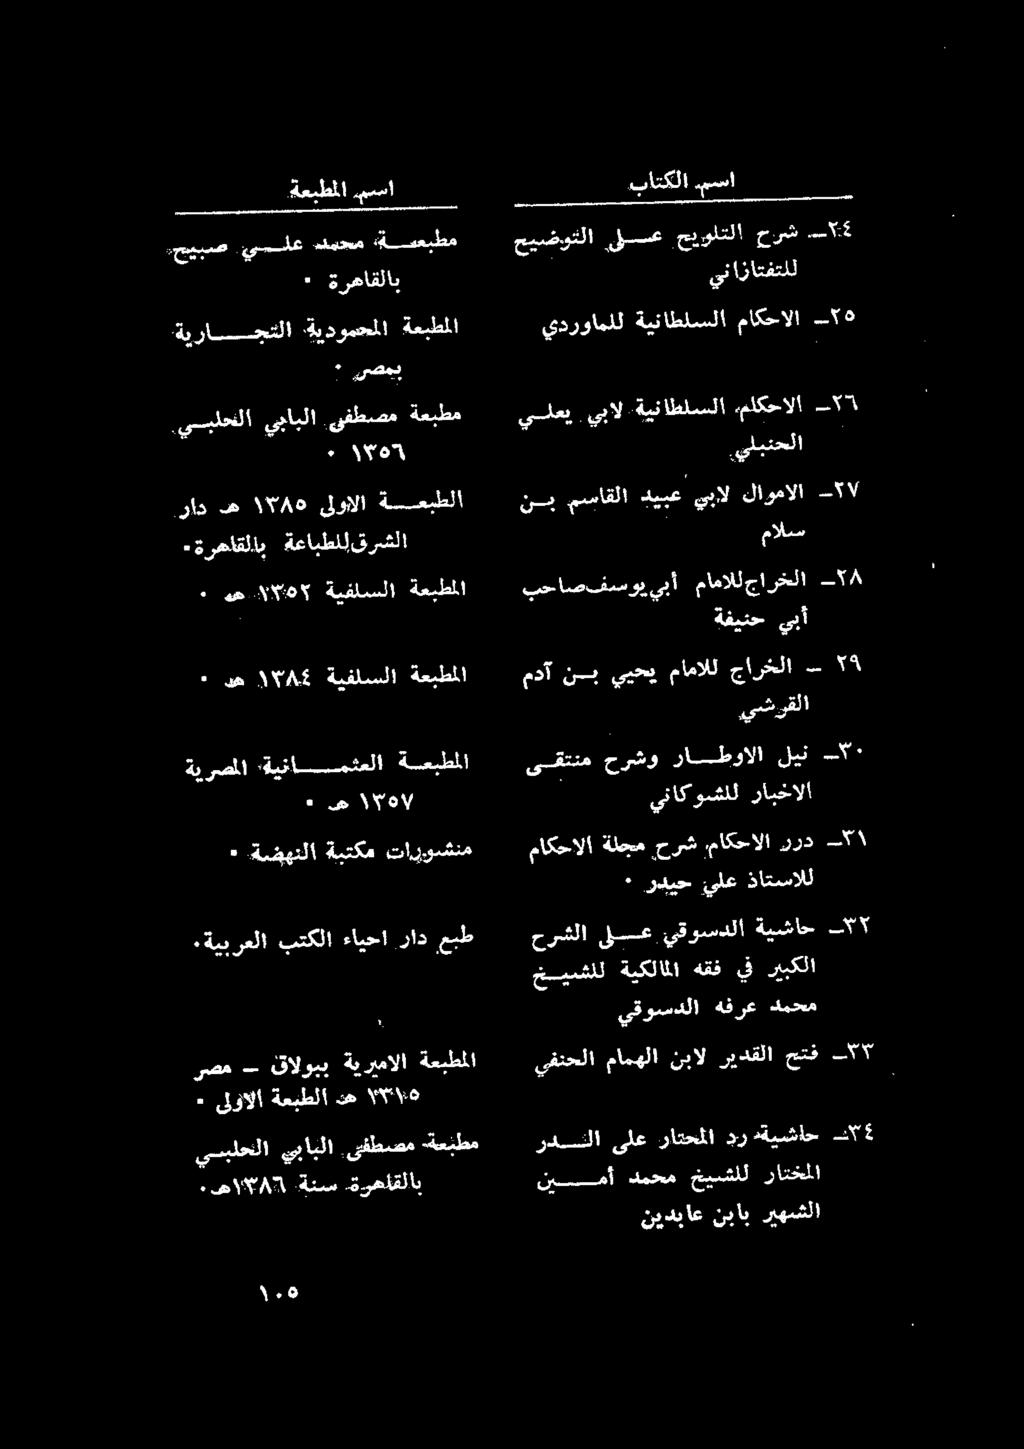 اسم الكتاب
اسم المطبعة
٢٤ـ شرح التلويح عـــلى التوضيح
للتفتازاني
مطبعــة محمد علـــي صبيح
بالقاهرة ٠
٢٥ـ الاحكام السلطانية للماوردي
المطبعة المحمودية التجـــارية
بمصر ٠
٢٦ـ الاحكام السلطانية لابي يعلـي
الحنبلي
مطبعة مصطفى البابي الحلبـي
١٣٥٦ ٠
٢٧ـ الاموال لابي عبيد القاسم بـن
سلام
الطبعــة الاولى ١٣٨٥ هـ دار
الشرق للطباعة بالقاهرة٠
٢٨ـ الخراج للامام أبي يوسف صاحب
أبي حنيفة
المطبعة السلفية ١٣٥٢ هـ ٠
٢٩ ـ الخراج للامام يحيي بـن آدم
القرشي
المطبعة السلفية ١٣٨٤ هـ ٠
٣٠ـ نيل الاوطــار وشرح منتقـى
الاخبار للشوكاني
المطبعــة العثمـــانية المصرية
١٣٥٧ هـ ٠
٣١ـ درر الاحكام شرح مجلة الاحكام
للاستاذ علي حيدر ٠
منشورات مكتبة النهضة ٠
٣٢ـ حاشية الدسوقي عـــلى الشرح
الكبير في فقه المالكية للشيــخ
محمد عرفه الدسوقي
طبع دار احياء الكتب العربية٠
٣٣ـ فتح القدير لابن الهمام الحنفي
المطبعة الاميرية ببولاق ـ مصر
١٣١٥ هـ الطبعة الاولى ٠
٣٤ـ حاشية رد المحتار على الـــدر
المختار للشيخ محمد أمـــين
الشهير بابن عابدين
مطبعة مصطفى البابي الحلبـي
بالقاهرة سنة ١٣٨٦هـ٠
١٠٥